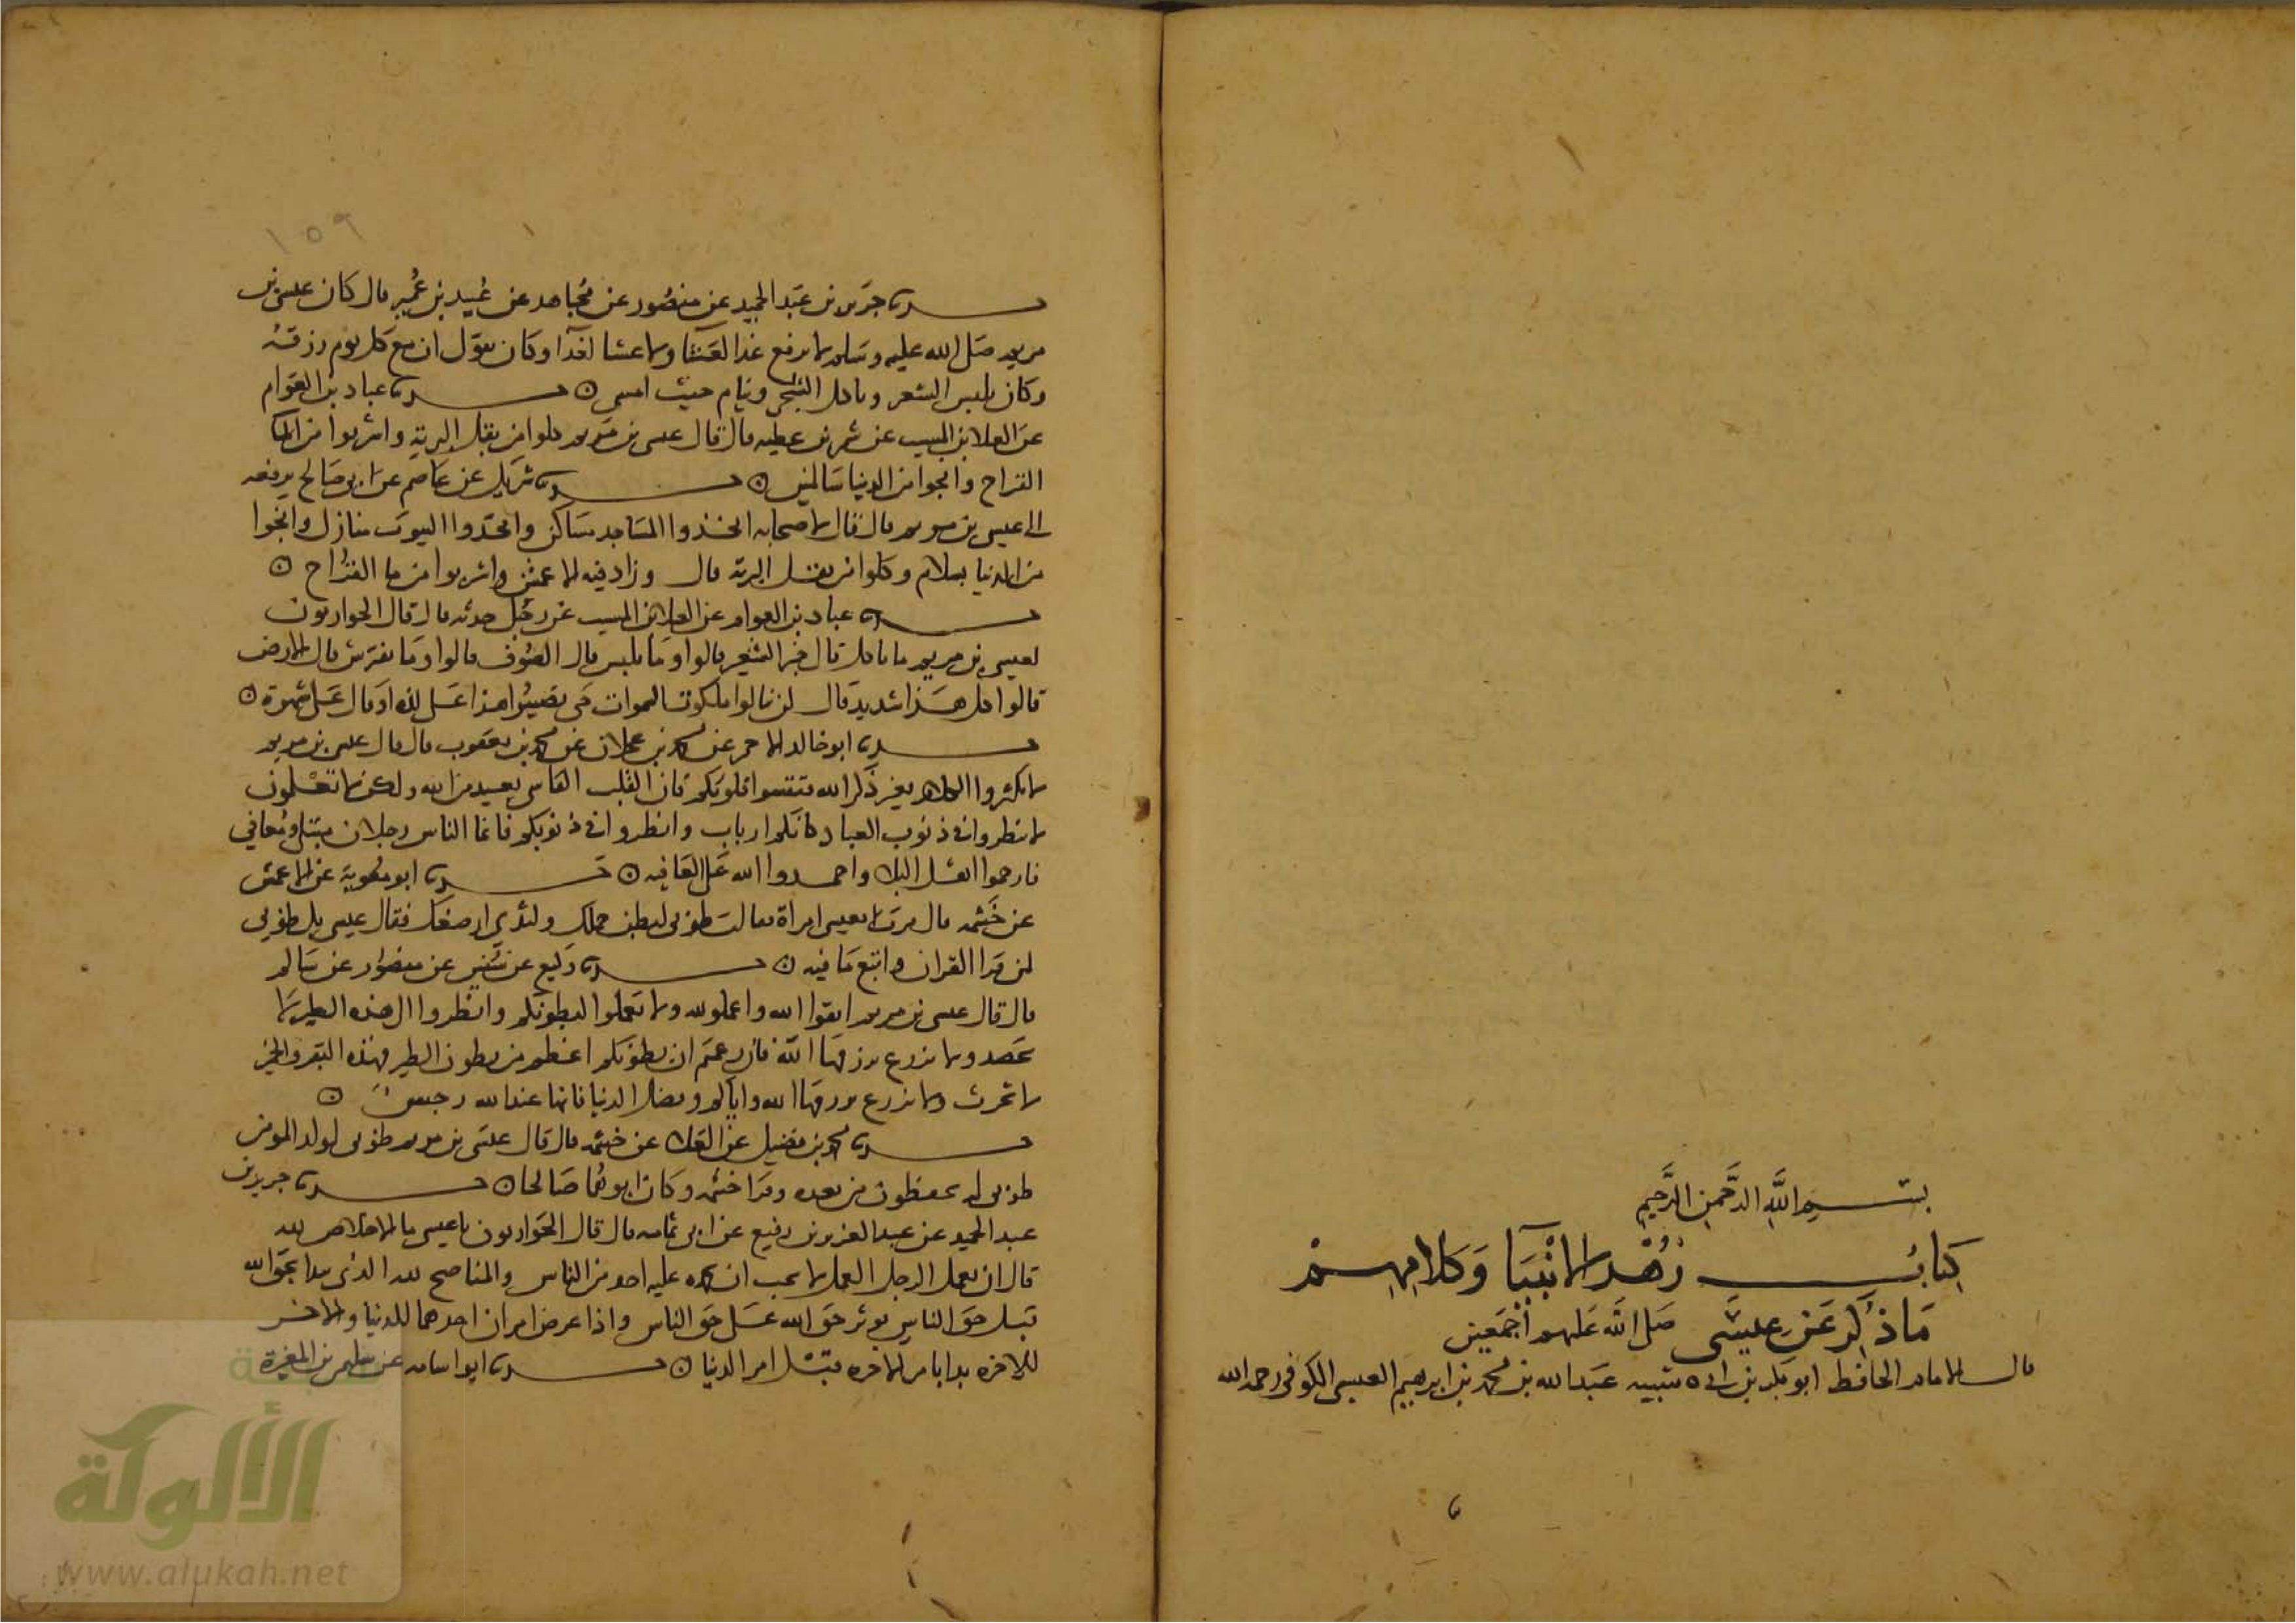 بسم الله الرَّحمن الرَّحيم
كتاب زُهْد الانْبيَا وَكلامِهِمْ
مَا ذُكِرَ عَن عِيسَى صَلى الله عَليهم أجمَعين
قال الامام الحافظ ابو بكر بن ابى شيبه عَبد الله بن محمد بن ابرهيم العبسى الكوفى رحمه الله
١٥٩
حدثنا جَرير بن عَبد الحميد عن منصُور عن مُجاهد عن عُبيد بن عُمير قال كَان عيسى بن
مريم صَلى الله عليه وسَلم لا يرفع غدا لعَشَا ولا عشا لغدَا وكان يقول ان مع كل يوم رزقه
وكان يلبس الشعر وياكل الشجر وينام حيث امسى ○ حدثنا عباد بن العَوام
عَن العلا بن المسيب عن شمر بن عطيه قال قال عيسى بن مريم كلوا من بقل البرية واشربوا من الما
القراح وانجوا من الدنيا سَالمين ○ حدثنا شريك عن عَاصم عن ابى صَالح يرفعه
الى عيسى بن مريم قال قال لاصحابه اتخذوا المسَاجد مسَاكن واتخذوا البيوت منازل وانجوا
من الدنيا بسلام وكلوا من بقل البرية قال وزاد فيه الاعمش واشربوا من ما القَراح ○
حدثنا عباد بن العوام عن العلا بن المسيب عن رجُل حدثه قال قال الحواريون
لعيسى بن مريم ما تاكل قال خبز الشعير قالوا وما تلبس قال الصُوف قالوا ومَا تفترش قال الارض
قالوا كل هَذا شديد قال لن تنالوا ملكوت السموات حَتى تصيبُوا هذا عَلى لذة او قال عَلى شهوة ○
حدثنا ابو خالد الاحمر عن محمد بن عجلان عن محمد بن يعقوب قال قال عيسى بن مريم
لا تكثروا الكلام بغير ذكر الله فتقسوا قلوبكم فان القلب القاسى بعيد من الله ولكن لا تعْلمون
لا تنظروا فى ذنوب العباد كانكم ارباب وانظروا فى ذنوبكم فانما الناس رجلان مبتلى ومُعافى
فارحموا اهل البلا واحمدوا الله عَلى العَافيه ○ حدثنا ابو معُوية عن الاعمش
عن خَيثمه قال مرت بعيسى امراة فقالت طوبى لبطن حملك ولثدي ارضعك فقال عيسى بل طوبى
لمن قرا القران واتبع مَا فيه ○ حدثنا وكيع عن سُفين عن منصُور عن سَالم
قال قال عيسى بن مريم اتقوا الله واعملوا لله ولا تعملوا لبطونكم وانظروا الى هذه الطير لا
تحصد ولا تزرع يرزقهَا الله فان زعمتم ان بطونكم اعظم من بطون الطير فهذه البقر والحمر
لا تحرث ولا تزرع يرزقهَا الله واياكم وفضل الدنيا فانها عند الله رجس ○
حدثنا محمد بن فضيل عن العَلا عن خيثمه قال قال عيسَى بن مريم طوبى لولد المومن
طوبى لهم يحفظون من بعده وقرا خيثمه وكان ابوهُما صَالحا ○ حدثنا جرير بن
عبد الحميد عن عبد العزيز بن رفيع عن ابى ثمامه قال قال الحَواريون يا عيسى ما الاخلاص لله
قال ان يعمل الرجل العمل لا يحب ان يحمده عليه احد من الناس والمناصح لله الذى يبدا بحق الله
قبل حَق الناس يوثر حَق الله عَلى حَق الناس واذا عرض امران احدهما للدنيا والاخر
للاخره بدا بامر الاخره قبْل امر الدنيا ○ حدثنا ابو اسامه عن سليمن بن المغيرة
الألوكة
www.alukah.net